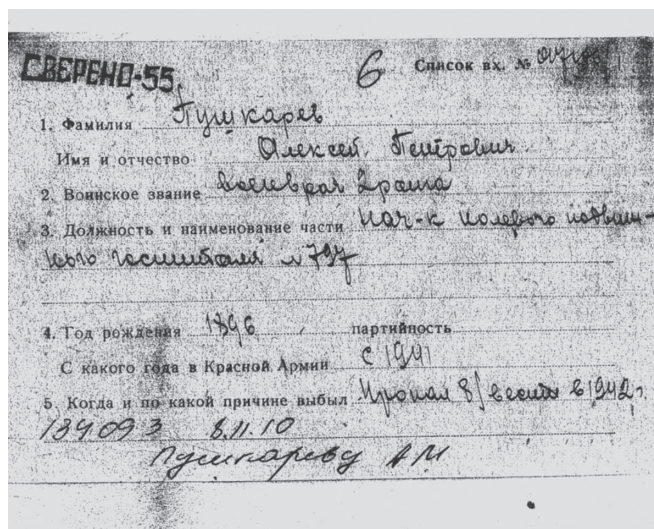 СВЕРЕНО-55
6 Список вх. №
1. Фамилия Пушкарев
Имя и отчество Алексей Петрович
2. Воинское звание военврач 2 ранга
3. Должность и наименование части нач-к полевого подвиж-
ного госпиталя № 797
4. Год рождения 1896 партийность
С какого года в Красной Армии с 1941
5. Когда и по какой причине выбыл Пропал б/вести в 1942 г.
184093 8.11.10
Пушкареву АМ